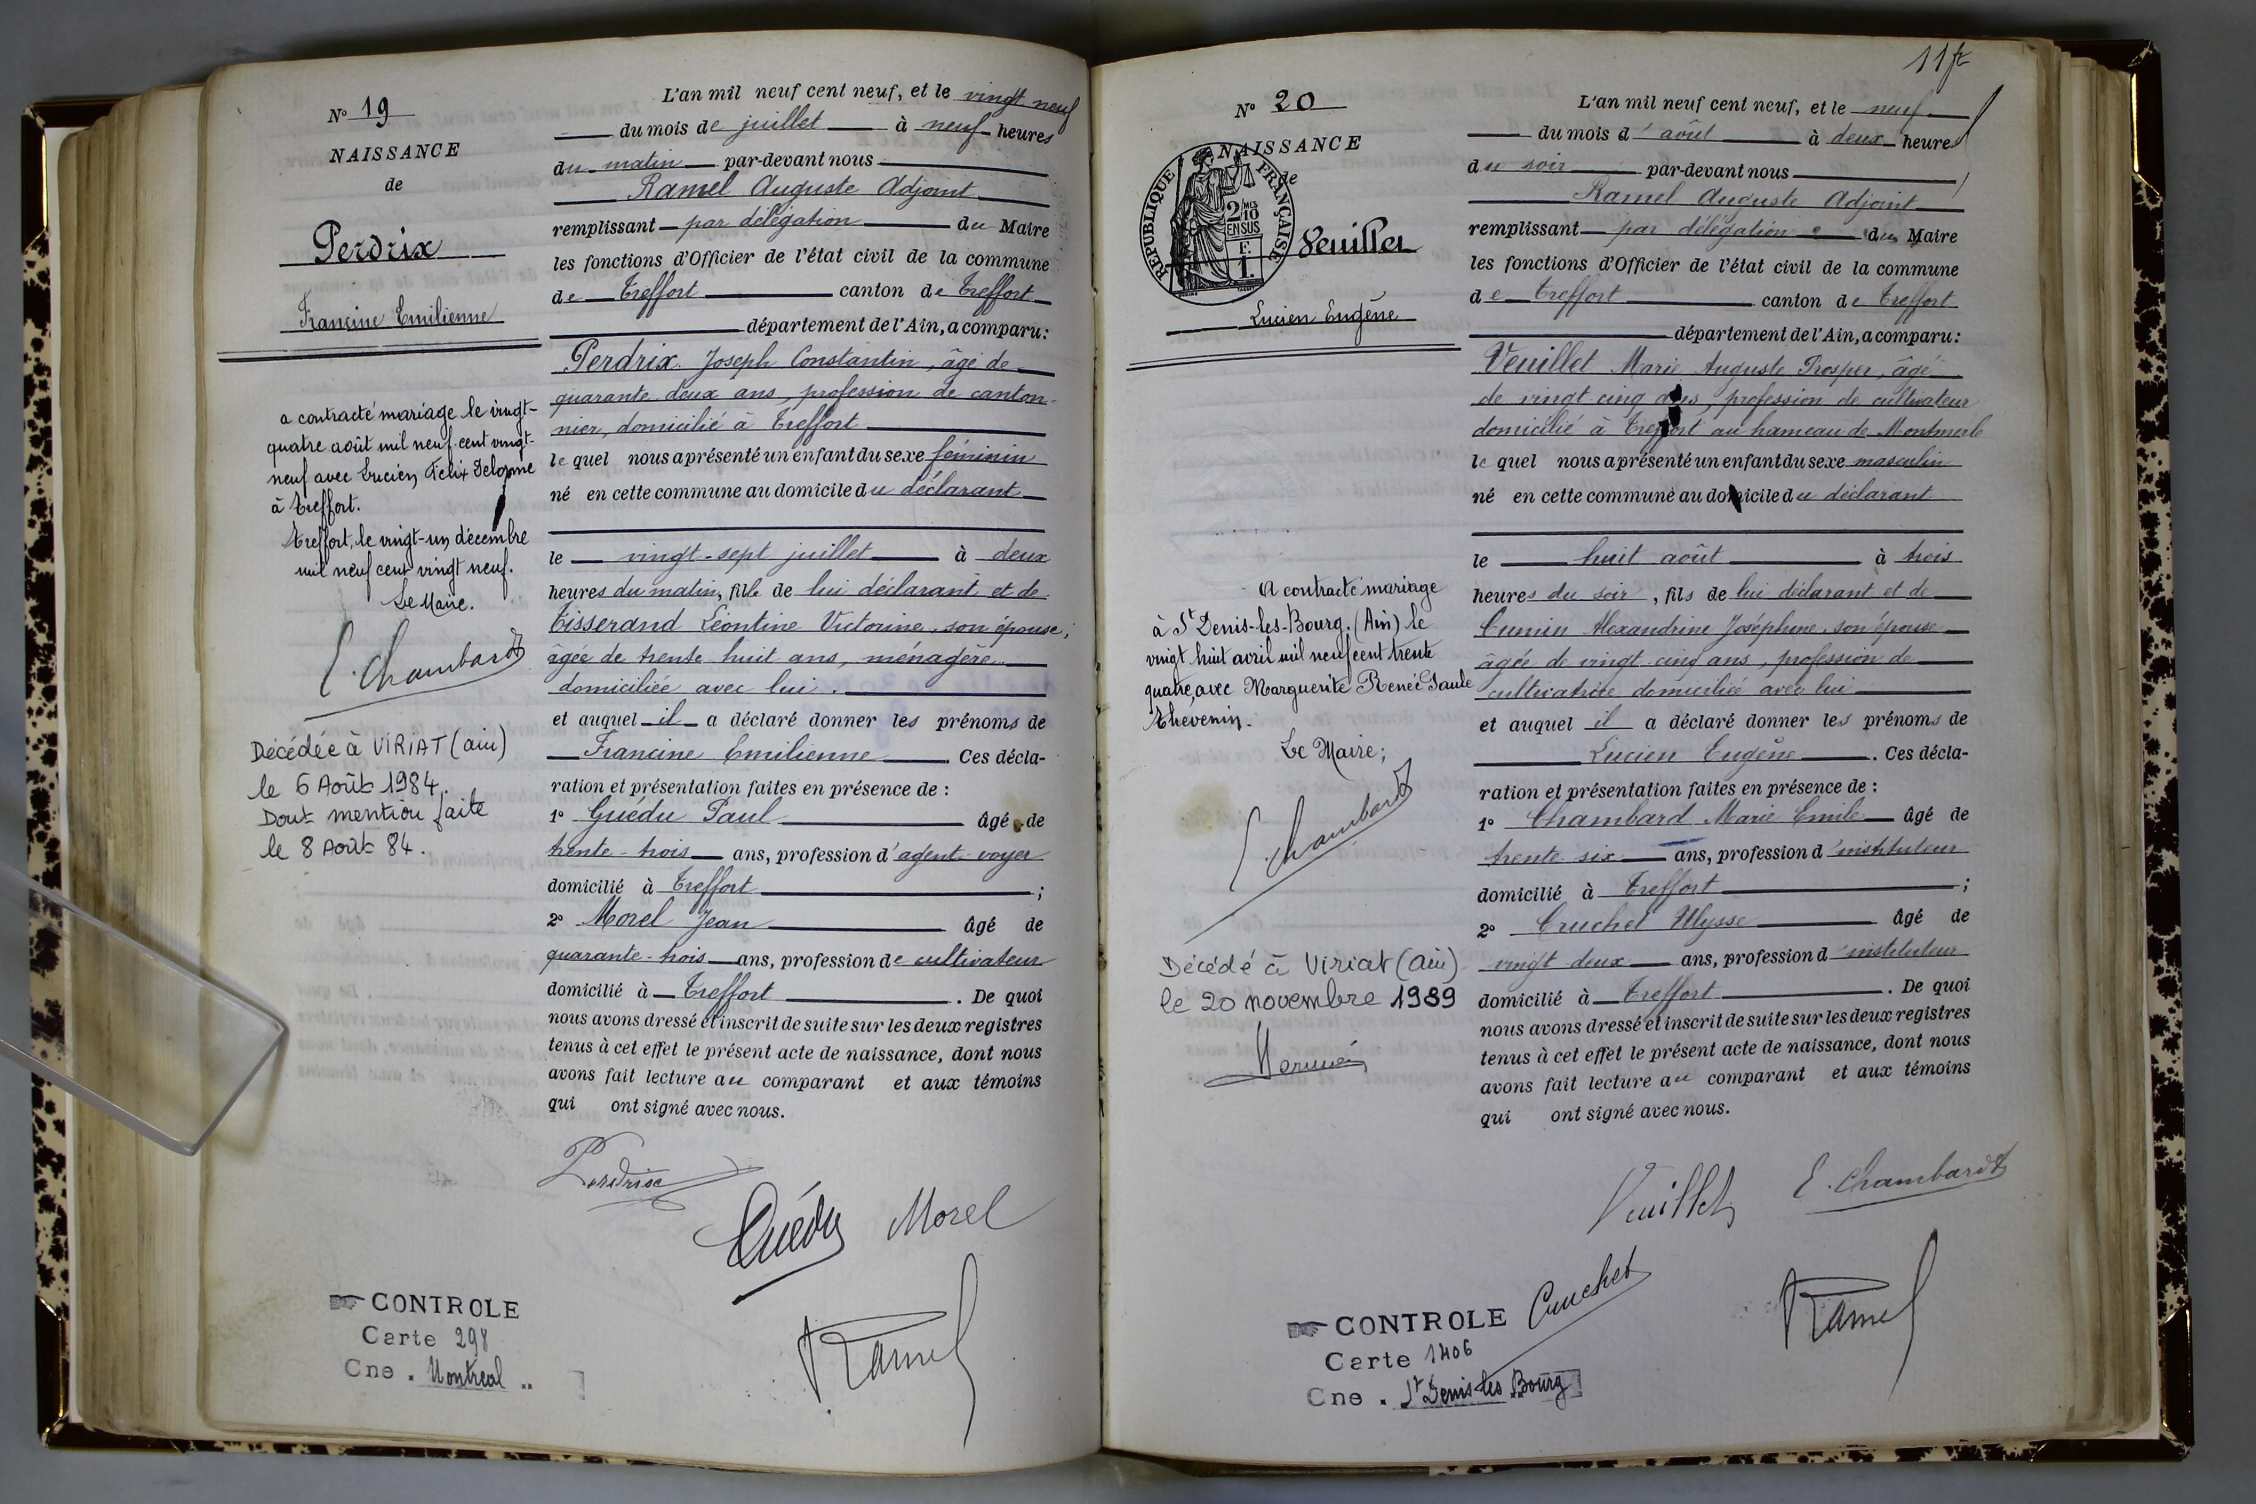 N° 19
NAISSANCE
de
Perdrix
Francine Emilienne
a contracté mariage le vingt-
quatre août mil neuf cent vingt-
neuf avec Lucien Félix Delorme
à Treffort.
Treffort, le vingt-un décembre
mil neuf cent vingt neuf.
Le Maire.
E. Chambard
Décédée à VIRIAT (ain)
le 6 Août 1984.
Dont mention faite
le 8 Août 84.
CONTROLE
Carte 298
Cne. Montreal
L'an mil neuf cent neuf, et le vingt neuf
du mois de juillet à neuf heures
du matin par-devant nous
Ramel Auguste Adjoint
remplissant par délégation du Maire
les fonctions d'Officier de l'état civil de la commune
de Treffort canton de Treffort
département de l'Ain, a comparu:
Perdrix Joseph Constantin, âgé de
quarante deux ans, profession de canton-
nier, domicilié à Treffort
lequel nous a présenté un enfant du sexe féminin
né en cette commune au domicile du déclarant
le vingt-sept juillet à deux
heures du matin, fille de lui déclarant et de
Tisserand Léontine Victorine, son épouse,
âgée de trente huit ans, ménagère
domiciliée avec lui.
et auquel il a déclaré donner les prénoms de
Francine Emilienne. Ces décla-
ration et présentation faites en présence de :
1° Guédu Paul âgé de
trente-trois ans, profession d'agent-voyer
domicilié à Treffort ;
2° Morel Jean âgé de
quarante-trois ans, profession de cultivateur
domicilié à Treffort. De quoi
nous avons dressé et inscrit de suite sur les deux registres
tenus à cet effet le présent acte de naissance, dont nous
avons fait lecture au comparant et aux témoins
qui ont signé avec nous.
Perdrix
Guédu Morel
Ramel
11
N° 20
NAISSANCE
de
REPUBLIQUE FRANÇAISE
2/10 MES
EN SUS
F.
1.
Veuillet
Lucien Eugène
A contracté mariage
à St Denis-les-Bourg (Ain) le
vingt huit avril mil neuf cent trente
quatre, avec Marguerite Renée Paule
Thévenin.
Le Maire;
E. Chambard
Décédé à Viriat (ain)
le 20 novembre 1989
CONTROLE
Carte 1406
Cne. St Denis les Bourg
L'an mil neuf cent neuf, et le neuf
du mois d'août à deux heures
du soir par-devant nous
Ramel Auguste Adjoint
remplissant par délégation du Maire
les fonctions d'Officier de l'état civil de la commune
de Treffort canton de Treffort
département de l'Ain, a comparu:
Veuillet Marie Auguste Prosper, âgé
de vingt cinq ans, profession de cultivateur
domicilié à Treffort au hameau de Montmerle
lequel nous a présenté un enfant du sexe masculin
né en cette commune au domicile du déclarant
le huit août à trois
heures du soir, fils de lui déclarant et de
Alexandrine Joséphine son épouse
âgée de vingt-cinq ans, profession de
cultivatrice domiciliée avec lui
et auquel il a déclaré donner les prénoms de
Lucien Eugène. Ces décla-
ration et présentation faites en présence de :
1° Chambard Marie Emile âgé de
trente six ans, profession d'instituteur
domicilié à Treffort ;
2° Cruchet Ulysse âgé de
vingt deux ans, profession d'instituteur
domicilié à Treffort. De quoi
nous avons dressé et inscrit de suite sur les deux registres
tenus à cet effet le présent acte de naissance, dont nous
avons fait lecture au comparant et aux témoins
qui ont signé avec nous.
Veuillet E. Chambard
Cruchet
Ramel